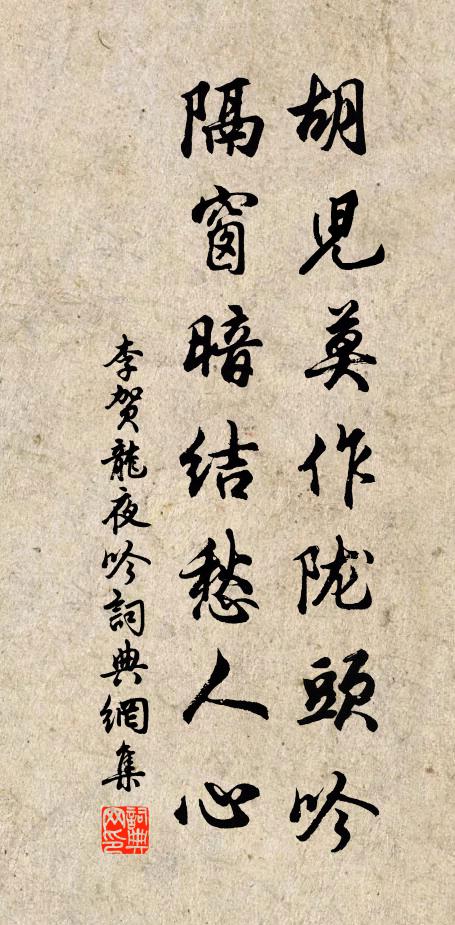 胡児莫作陇頭吟
隔窗暗结愁人心
李贺龍夜吟詞典網集
詞典网印